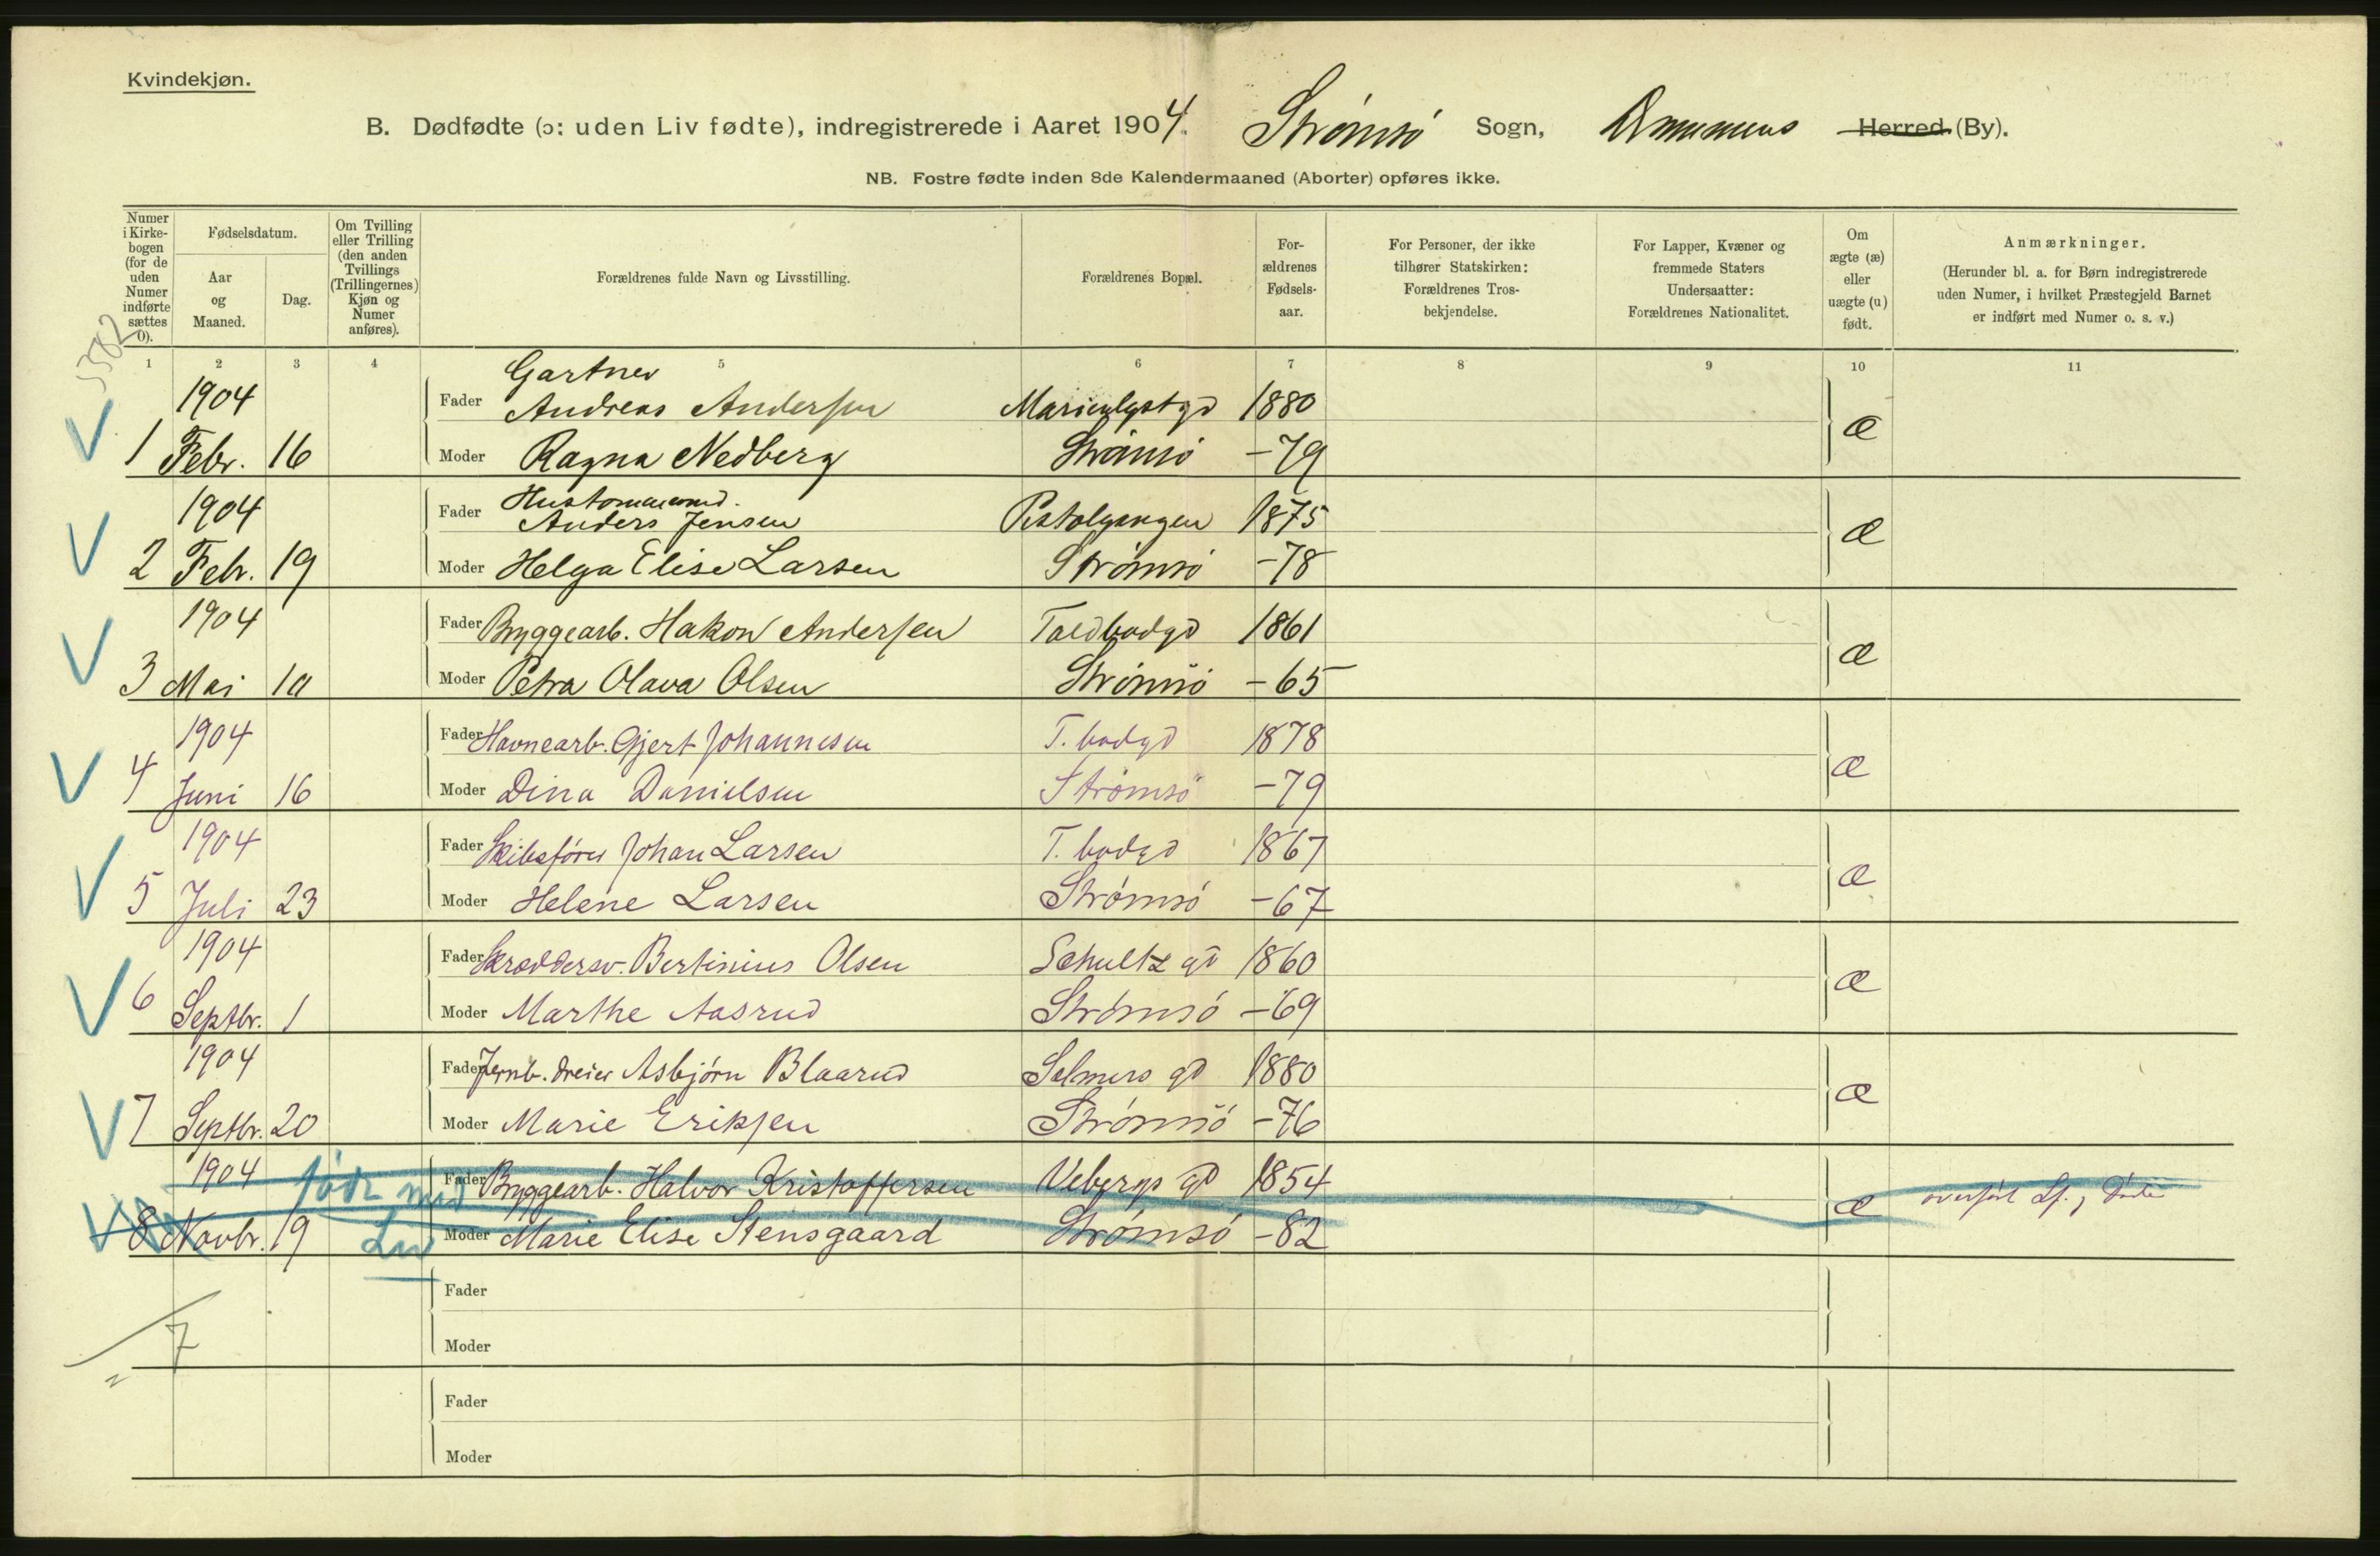 Kvindekjøn.
B. Dødfødte (ɔ: uden Liv fødte), indregistrerede i Aaret 1904. Strømsö Sogn, Drammens Herred (By).
NB. Fostre fødte inden 8de Kalendermaaned (Aborter) opføres ikke.
Numer i Kirke-bogen (for de uden Numer indførte sættes 0).
Fødselsdatum.
Aar og Maaned.
Dag.
Om Tvilling eller Trilling (den anden Tvillings (Trillingernes) Kjøn og Numer anføres).
Forældrenes fulde Navn og Livsstilling.
Forældrenes Bopæl.
For-ældrenes Fødsels-aar.
For Personer, der ikke tilhører Statskirken: Forældrenes Tros-bekjendelse.
For Lapper, Kvæner og fremmede Staters Undersaatter: Forældrenes Nationalitet.
Om ægte (æ) eller uægte (u) født.
Anmærkninger.
(Herunder bl. a. for Børn indregistrerede uden Numer, i hvilket Præstegjeld Barnet er indført med Numer o. s. v.)
1 2 3 4 5 6 7 8 9 10 11
Gartner
1904 Fader Andreas Andersen Marienlystgd 1880
æ
1 Febr. 16 Moder Ragna Nedberg Strömsö -79
1904 Fader Anders Jensen Pistolgangen 1875
æ
2 Febr. 19 Moder Helga Elise Larsen Strömsö -78
1904 Fader Bryggearb. Hakon Andersen Toldbodgd 1861
æ
3 Mai 10 Moder Petra Olava Olsen Strömsö -65
1904 Fader Havnearb. Gjert Johannesen T. bodgd 1878
æ
4 Juni 16 Moder Dina Danielsen Strömsö -79
1904 Fader Skibsförer Johan Larsen T. bodgd 1867
æ
5 Juli 23 Moder Helene Larsen Strömsö -67
1904 Fader Skræddersv. Bertinius Olsen Schultz gd 1860
æ
6 Septbr. 1 Moder Marthe Aasrud Strömsö -69
1904 Fader Jernb. dreier Asbjörn Blaarud Selmers gd 1880
æ
7 Septbr. 20 Moder Marie Eriksen Strömsö -76
1904 født med Fader Bryggearb. Halvor Kristoffersen Vebergs gd 1854
æ overført Lf. , Döde
8 Novbr. 19 Liv Moder Marie Elise Stensgaard Strömsö -82
Fader
7 Moder
Fader
Moder